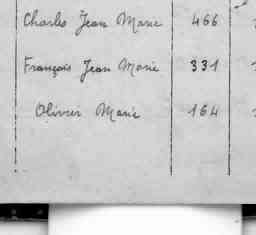 Charles Jean Marie 466
François Jean Marie 331
Olivier Marie 164